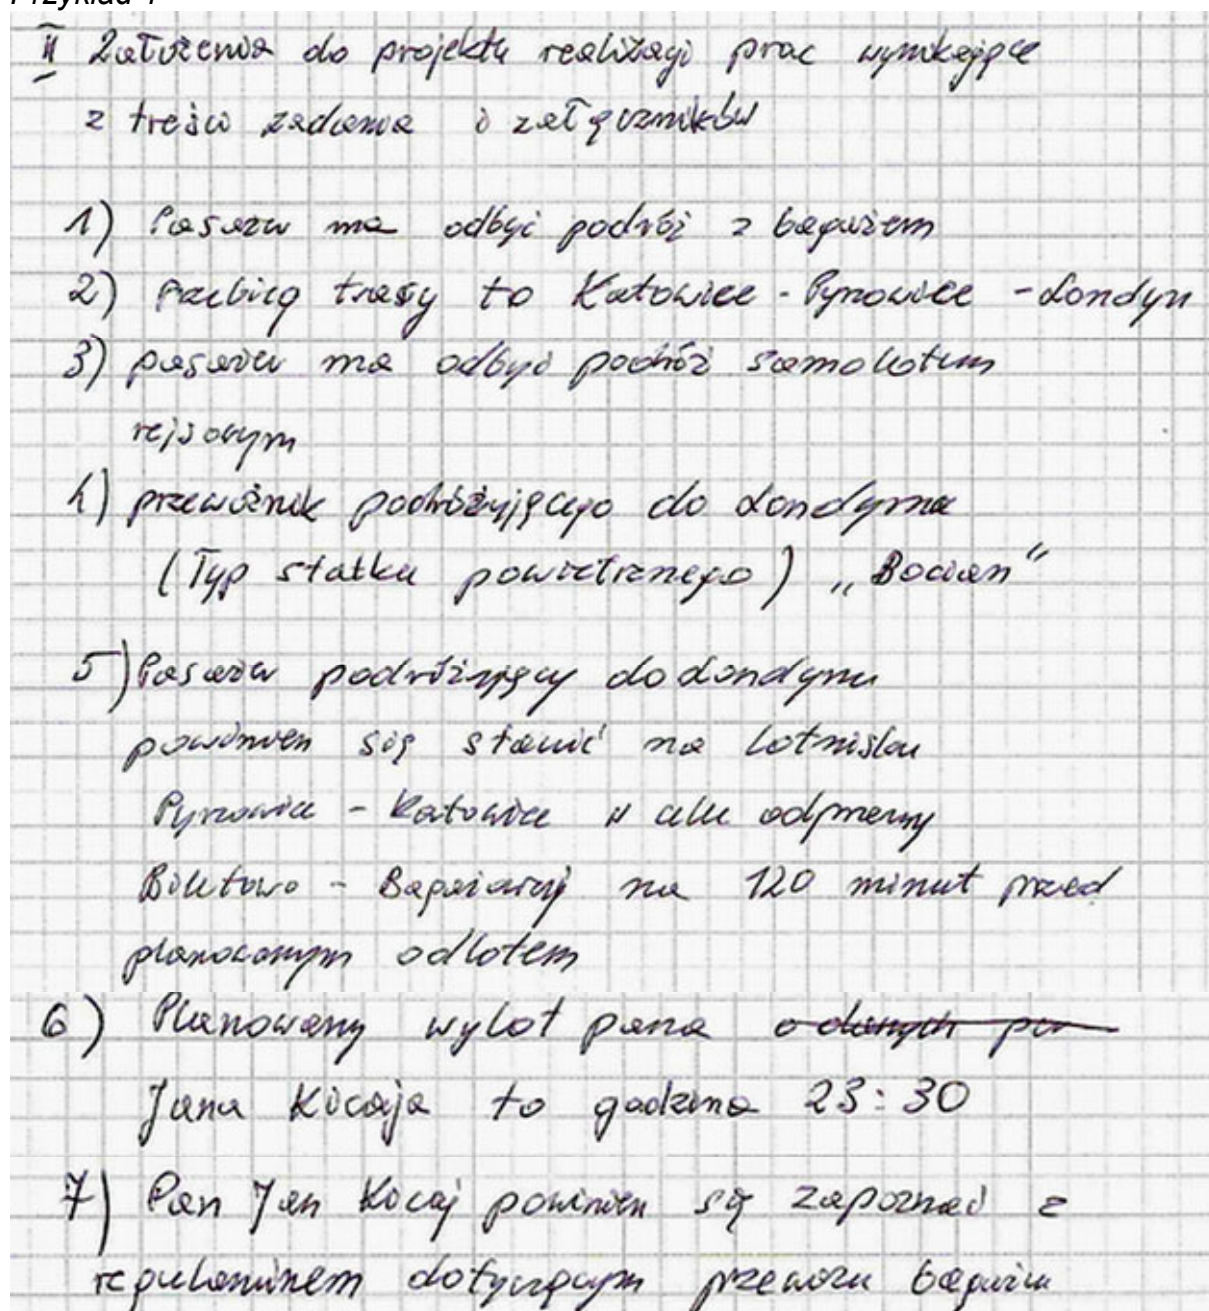 Przykład 1
II Założenia do projektu realizacji prac wynikające
z treści zadania i załączników
1) Pasażer ma odbyć podróż z bagażem
2) Przebieg trasy to Katowice - Pyrzowice - Londyn
3) pasażer ma odbyć podróż samolotem
rejsowym
4) przewoźnik podróżującego do Londyna
(Typ statku powietrznego) „Bocian"
5) Pasażer podróżujący do Londynu
powinien się stawić na lotnisku
Pyrzowice - Katowice w celu odprawy
Biletowo - Bagażowej na 120 minut przed
planowanym odlotem
6) Planowany wylot pana o danych pa
Jana Kicaja to godzina 23:30
7) Pan Jan Kicaj powinien się zapoznać z
regulaminem dotyczącym przewozu bagażu